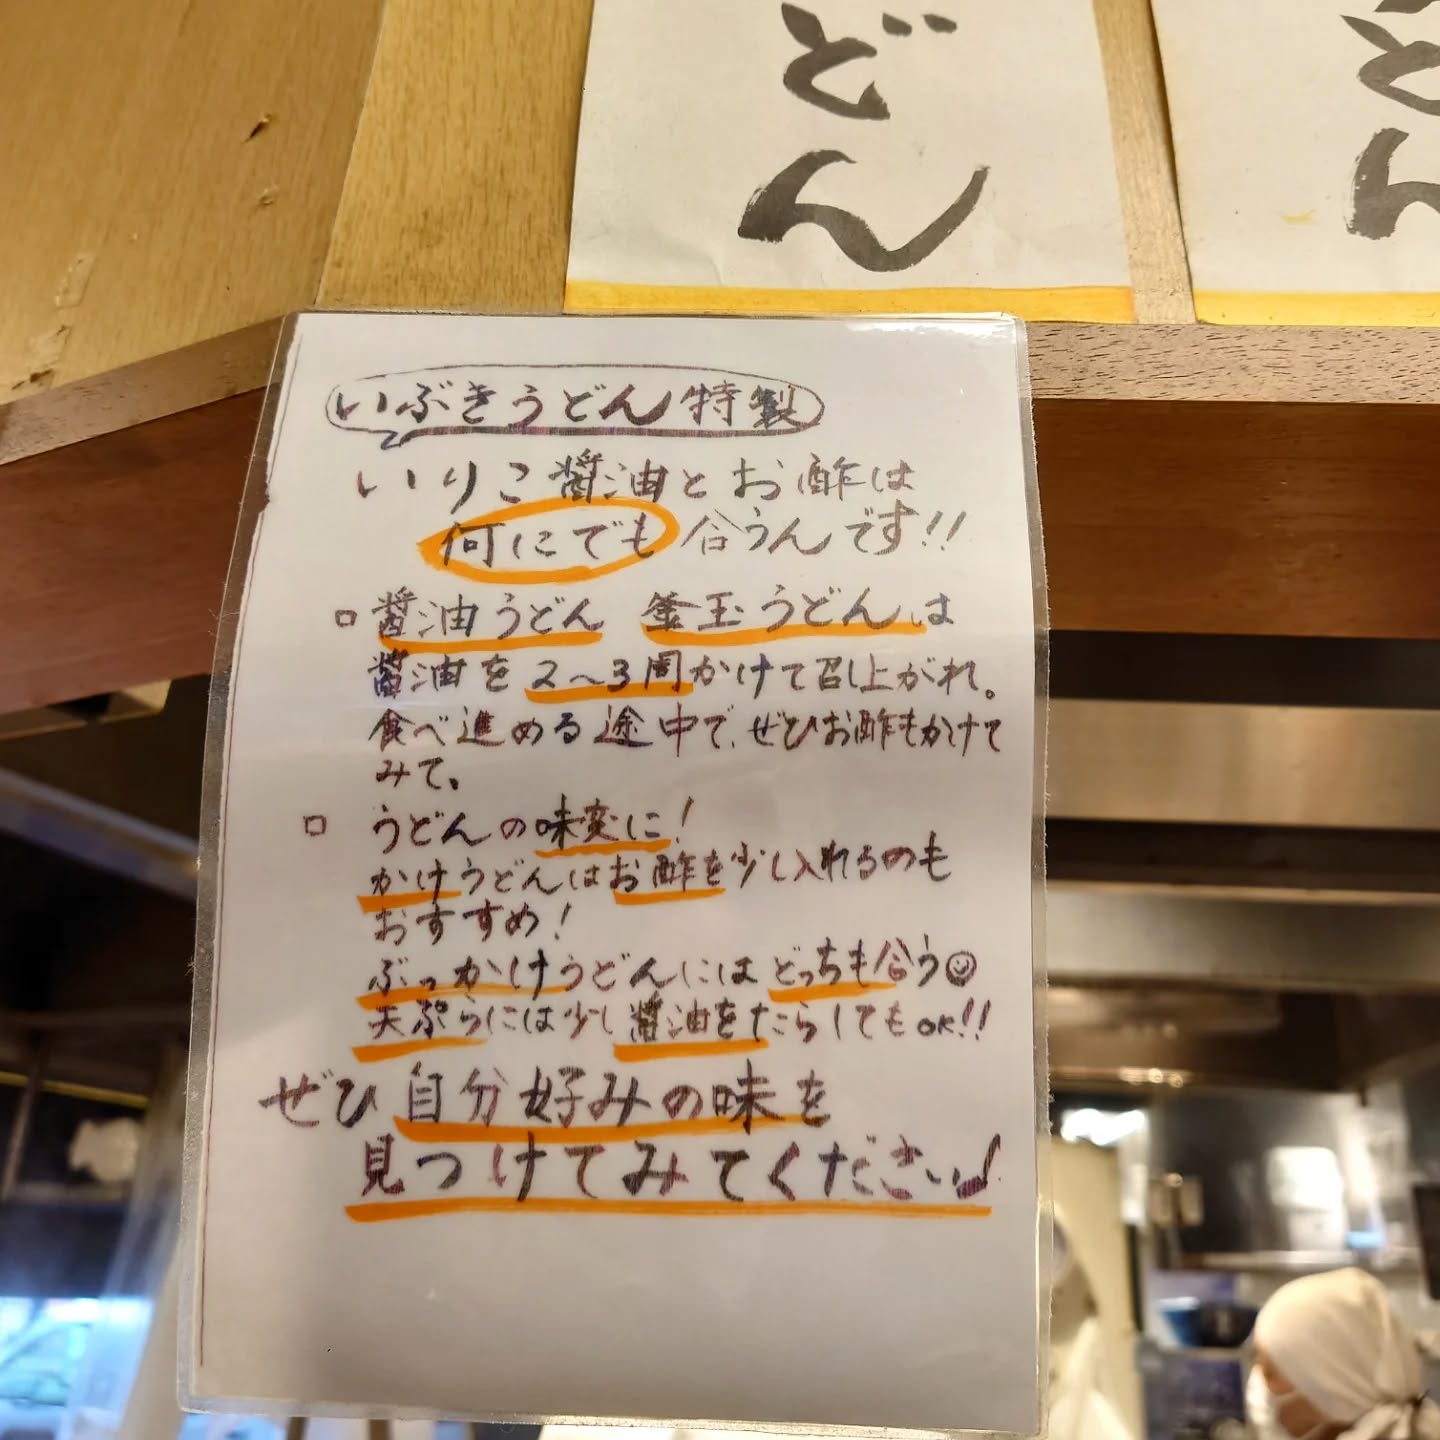 どん
どん
いぶきうどん特製
いりこ醤油とお酢は
何にでも合うんです!!
□醤油うどん 釜玉うどんは
醤油を2〜3周かけて召し上がれ。
食べ進める途中で、ぜひお酢もかけて
みて。
□ うどんの味変に!
かけうどんはお酢を少し入れるのも
おすすめ!
ぶっかけうどんにはどっちも合う☺
天ぷらには少し醤油をたらしてもOK!!
ぜひ自分好みの味を
見つけてみてください♪